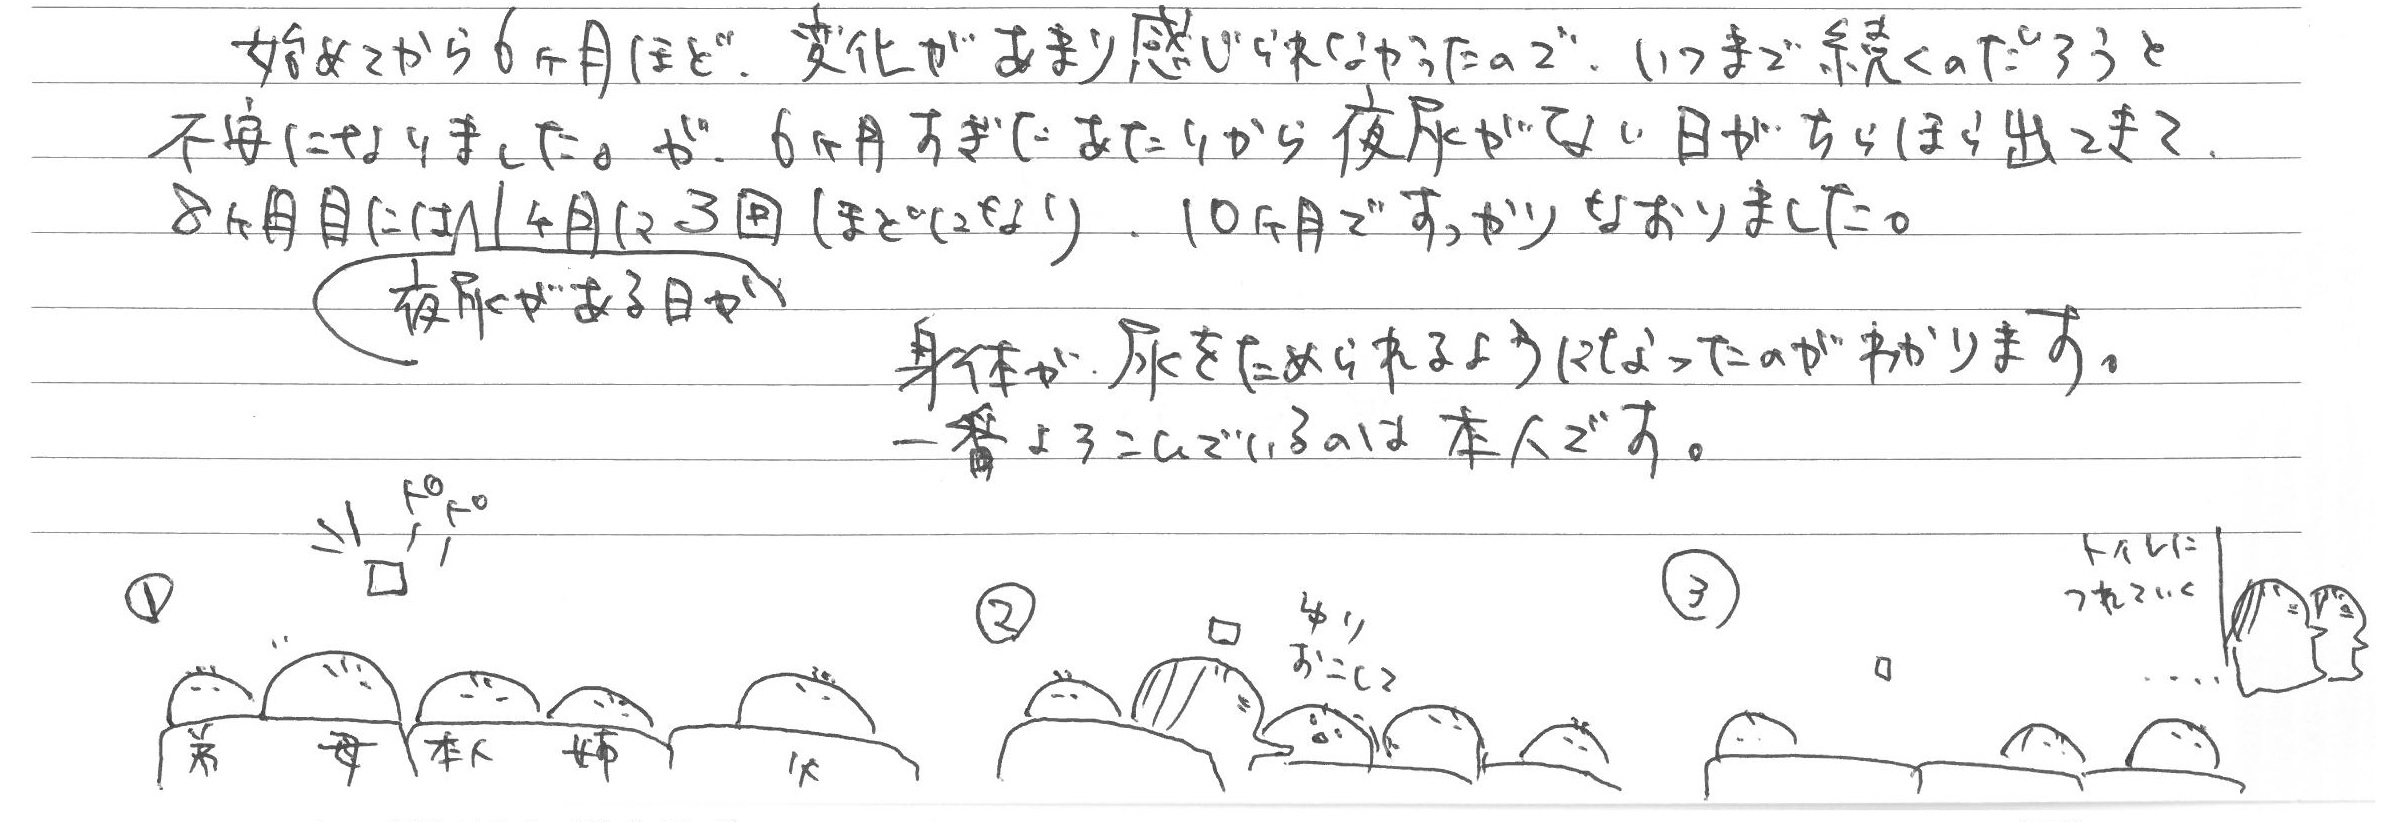 始めてから6ヶ月ほど、変化があまり感じられなかったので、いつまで続くのだろうと
不安になりました。が、6ヶ月すぎたあたりから夜尿がでない日がちらほら出てきて、
8ヶ月目には1ヶ月に3回ほどになり、10ヶ月ですっかりなおりました。
夜尿がある日が
身体が、尿をためられるようになったのがわかります。
一番よろこんでいるのは本人です。
ドロドロ
①
弟 母 本人 姉 父
②
ゆり
おこして
③
トイレに
つれていく